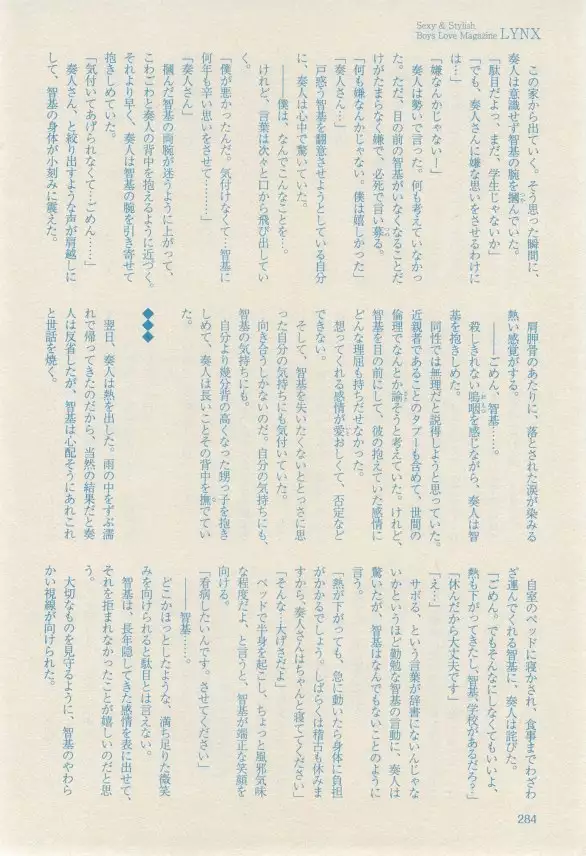 Sexy & Stylish
Boys Love Magazine LYNX
この家から出ていく。そう思った瞬間に、
奏人は意識せず智基の腕を掴んでいた。
「駄目だよっ、まだ、学生じゃないか」
「でも、奏人さんに嫌な思いをさせるわけに
は…」
「嫌なんかじゃないー」
奏人は勢いで言った。何も考えていなかっ
た。ただ、目の前の智基がいなくなることだ
けがたまらなく嫌で、必死で言い募る。
「何も嫌なんかじゃない。僕は嬉しかった」
「奏人さん…」
戸惑う智基を翻意させようとしている自分
に、奏人は心中で驚いていた。
――僕は、なんでこんなことを…。
けれど、言葉は次々と口から飛び出してい
く。
「僕が悪かったんだ。気付けなくて…智基に
何年も辛い思いをさせて………」
「奏人さん」
掴んだ智基の両腕が迷うように上がって、
こわごわと奏人の背中を抱えるように近づく。
それより早く、奏人は智基の腕を引き寄せて
抱きしめていた。
「気付いてあげられなくて…ごめん……」
奏人さん、と絞り出すような声が肩越しに
して、智基の身体が小刻みに震えた。
肩胛骨のあたりに、落とされた涙が染みる
熱い感覚がする。
――ごめん、智基……。
殺しきれない嗚咽を感じながら、奏人は智
基を抱きしめた。
同性では無理だと説得しようと思っていた。
近親者であることのタブーも含めて、世間の
倫理でなんとか諭そうと考えていた。けれど、
智基を目の前にして、彼の抱えていた感情に
どんな理屈も持ちだせなかった。
想ってくれる感情が愛おしくて、否定など
できない。
そして、智基を失いたくないととっさに思
った自分の気持ちにも気付いていた。
向き合うしかないのだ。自分の気持ちにも、
智基の気持ちにも。
自分より幾分背の高くなった甥っ子を抱き
しめて、奏人は長いことその背中を撫でてい
た。
◆◆◆
翌日、奏人は熱を出した。雨の中をずぶ濡
れで帰ってきたのだから、当然の結果だと奏
人は反省したが、智基は心配そうにあれこれ
と世話を焼く。
自室のベッドに寝かされ、食事までわざわ
ざ運んでくれる智基に、奏人は詫びた。
「ごめん。でもそんなにしなくてもいいよ、
熱も下がってきたし、智基、学校があるだろ?」
「休んだから大丈夫です」
「え…」
サボる、という言葉が辞書にないんじゃな
いかというほど勤勉な智基の言動に、奏人は
驚いたが、智基はなんでもないことのように
言う。
「熱が下がっても、急に動いたら身体に負担
がかかるでしょう。しばらくは稽古も休みま
すから、奏人さんはちゃんと寝ててください」
「そんな…大げさだよ」
ベッドで半身を起こし、ちょっと風邪気味
な程度だよ、と言うと、智基が端正な笑顔を
向ける。
「看病したいんです。させてください」
――智基……。
どこかほっとしたような、満ち足りた微笑
みを向けられると駄目とは言えない。
智基は、長年隠してきた感情を表に出せて、
それを拒まれなかったことが嬉しいのだと思
う。
大切なものを見守るように、智基のやわら
かい視線が向けられた。
284